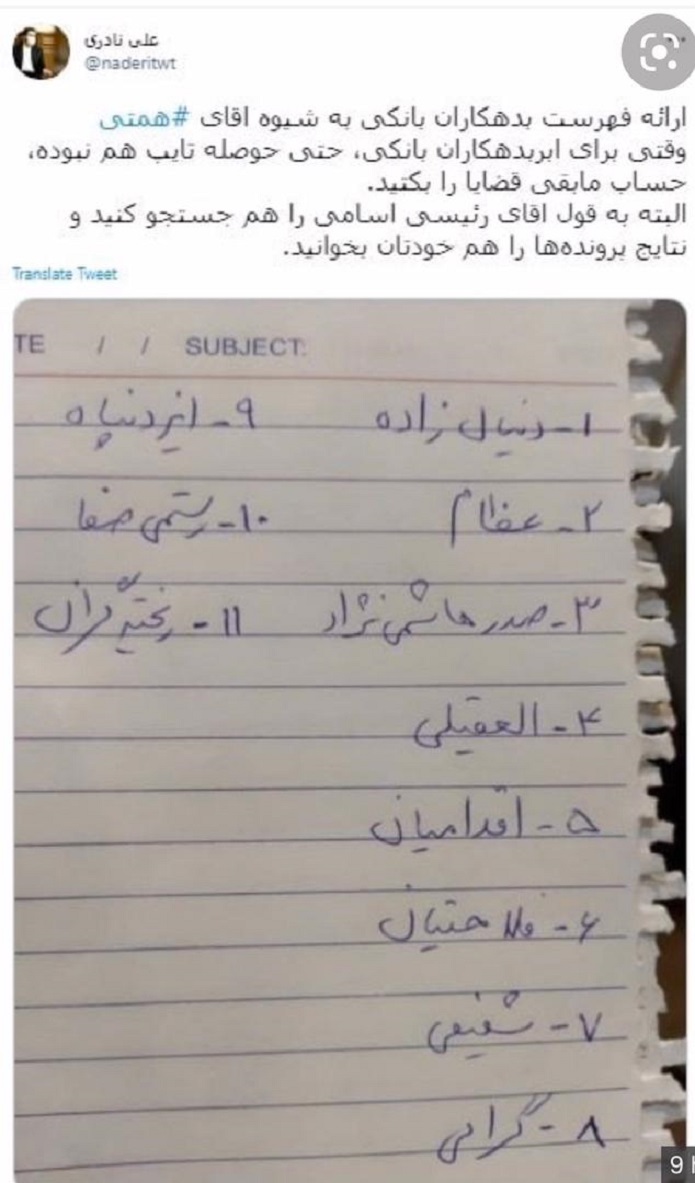 علی نادری
@naderitwt
ارائه فهرست بدهکاران بانکی به شیوه اقای #همتی
وقتی برای ابربدهکاران بانکی، حتی حوصله تایپ هم نبوده،
حساب مابقی قضایا را بکنید.
البته به قول اقای رئیسی اسامی را هم جستجو کنید و
نتایج پرونده‌ها را هم خودتان بخوانید.
Translate Tweet
TE / / SUBJECT:
۱- دنیال زاده
۹- ایزدپناه
۲- عظام
۱۰- رستمی صفا
۳- صدرهاشمی نژاد
۱۱- ریخته گران
۴- العقیلی
۵- اقدامیان
۶- فلاحتیان
۷- شفیعی
۸- گرامی
9